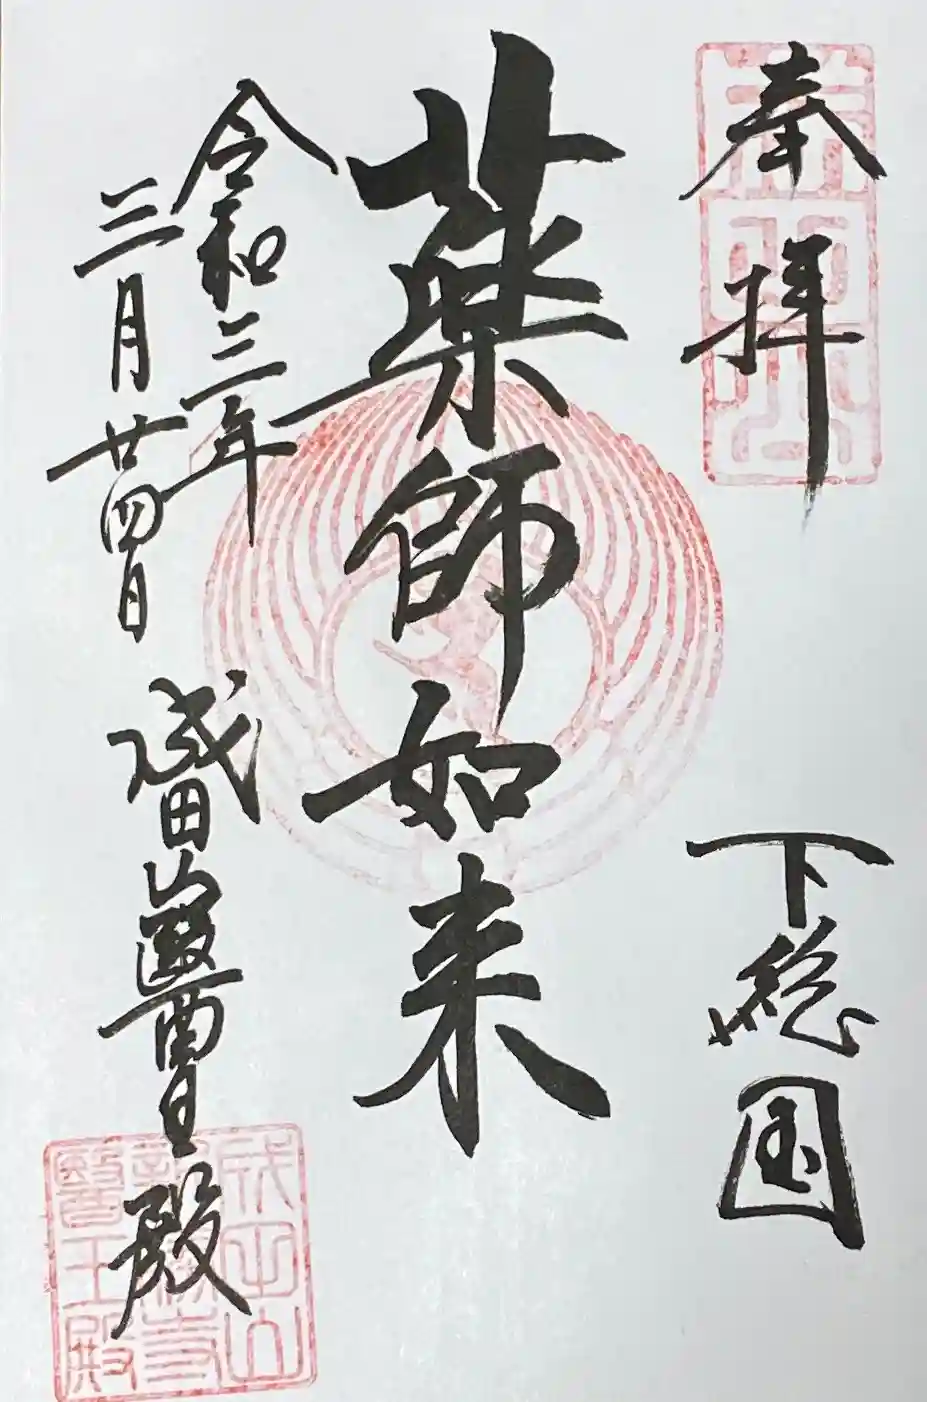 奉拝
下総国
薬師如来
令和三年
三月廿四日
成田山醫王殿
成田山
醫王殿